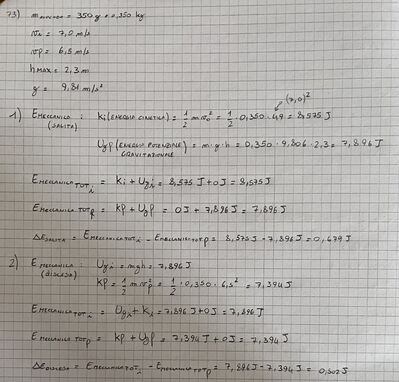 73) m = 350 g = 0,350 kg
v₀ = 7,0 m/s
vf = 6,5 m/s
hMAX = 2,3 m
g = 9,81 m/s²
(7,0)²
1) EMECCANICA (SALITA) : Ki (ENERGIA CINETICA) = 1/2 m v₀² = 1/2 · 0,350 · 49 = 8,575 J
Ugf (ENERGIA POTENZIALE GRAVITAZIONALE) = m · g · h = 0,350 · 9,806 · 2,3 = 7,896 J
EMECCANICA TOT i = Ki + Ugi = 8,575 J + 0 J = 8,575 J
EMECCANICA TOT f = Kf + Ugf = 0 J + 7,896 J = 7,896 J
ΔESALITA = EMECCANICA TOT i - EMECCANICA TOT f = 8,575 J - 7,896 J = 0,679 J
2) EMECCANICA (DISCESA) : Ugi = mgh = 7,896 J
Kf = 1/2 m vf² = 1/2 · 0,350 · 6,5² = 7,394 J
EMECCANICA TOT i = Ugi + Ki = 7,896 J + 0 J = 7,896 J
EMECCANICA TOT f = Kf + Ugf = 7,394 J + 0 J = 7,394 J
ΔEDISCESA = EMECCANICA TOT i - EMECCANICA TOT f = 7,896 J - 7,394 J = 0,502 J